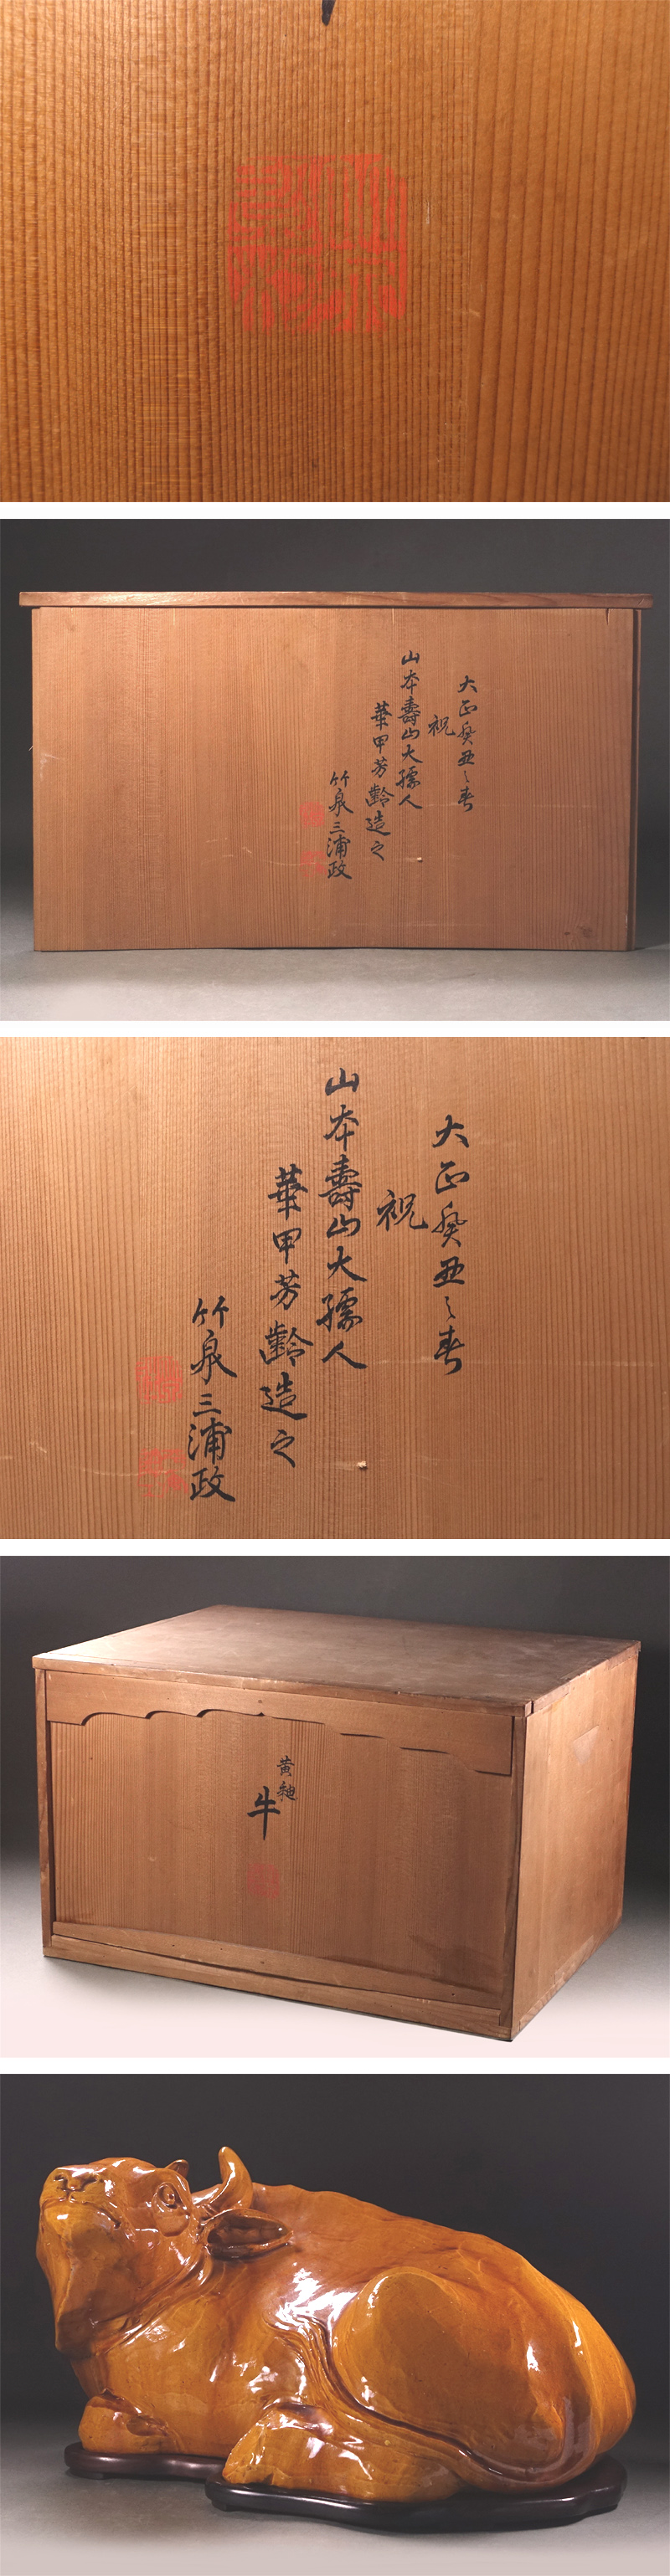 大正癸丑之春
祝
山本壽山大孺人
華甲芳齡造之
竹泉三浦政
大正癸丑之春
祝
山本壽山大孺人
華甲芳齡造之
竹泉三浦政
黄釉
牛